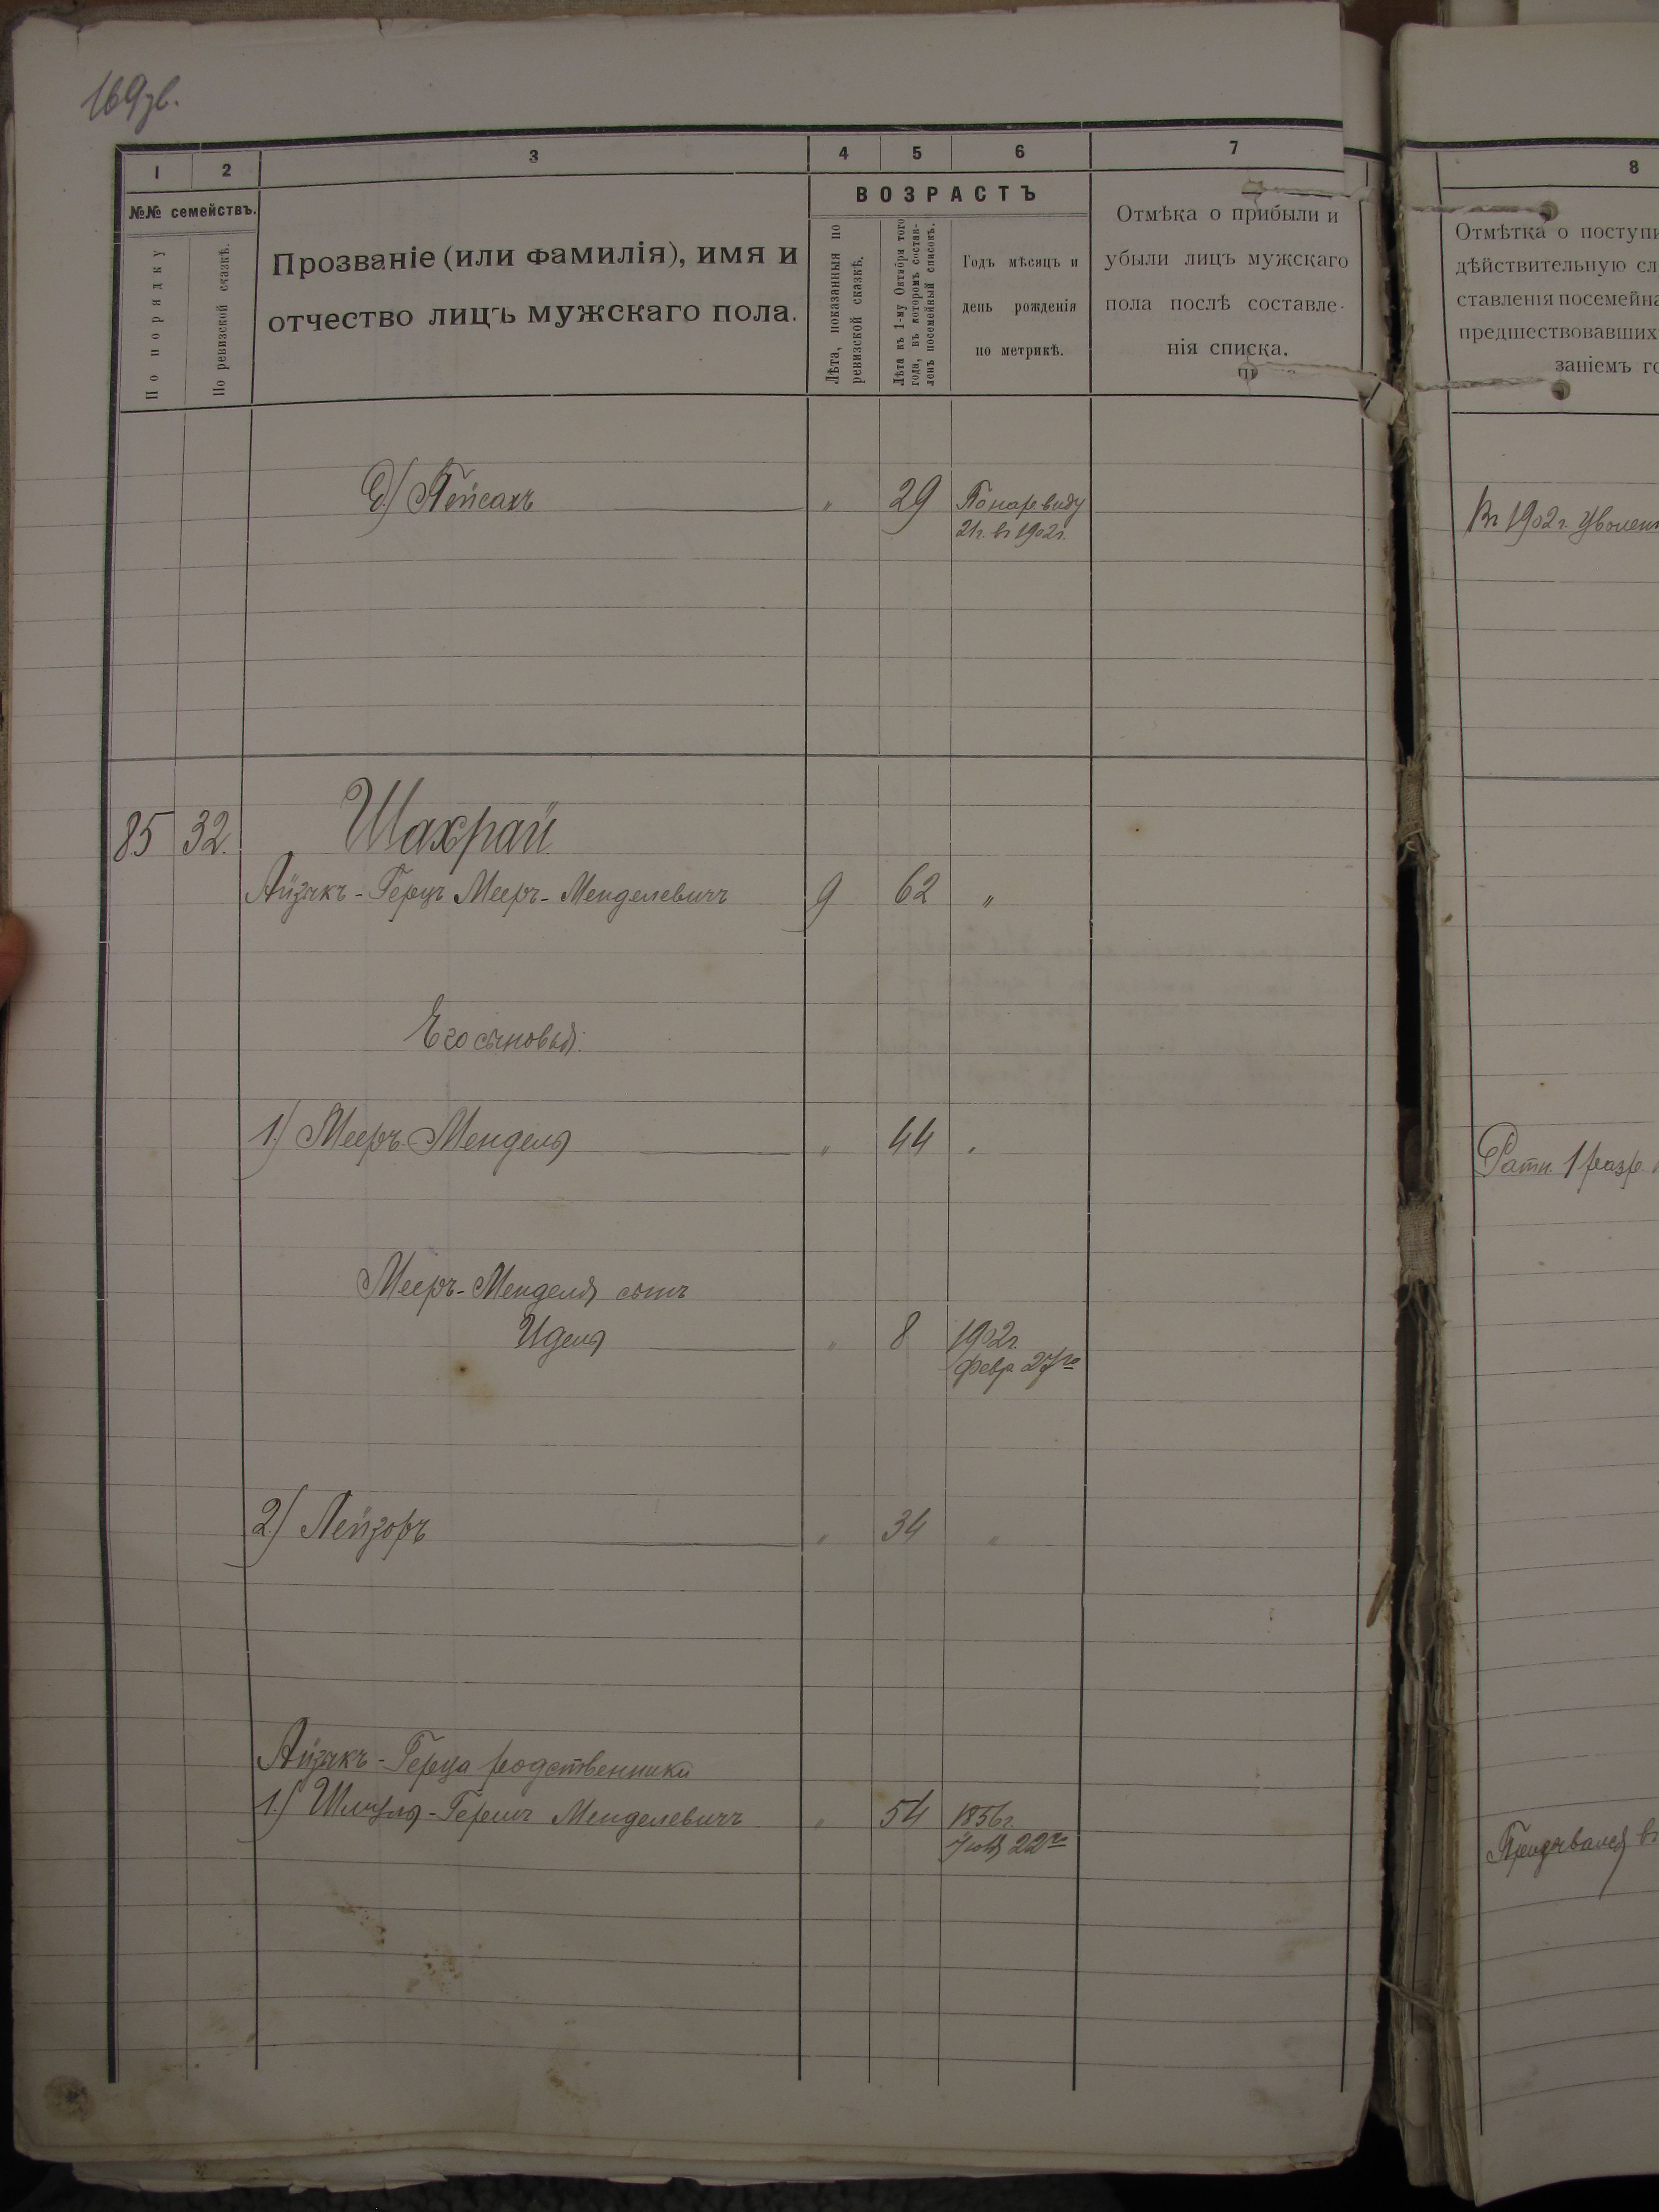 169зв.
1 2 3 4 5 6 7
№№ семействъ.
По порядку
По ревизской сказкѣ.
Прозваніе (или фамилія), имя и
отчество лицъ мужскаго пола.
ВОЗРАСТЪ
Лѣта, показанныя по
ревизской сказкѣ.
Лѣта къ 1-му Октября того
года, въ которомъ состав-
ленъ посемейный списокъ.
Годъ мѣсяцъ и
день рожденія
по метрикѣ.
Отмѣка о прибыли и
убыли лицъ мужскаго
пола послѣ составле-
нія списка.
Пейсахъ " 29 По нар. виду
21 г. въ 1902 г.
85 32. Шахрай
Айзикъ-Герцъ Мееръ-Менделевичъ 9 62 "
Его сыновья:
1) Мееръ-Мендель " 44 "
Мееръ-Менделя сынъ
Идель " 8 1902 г.
Февр. 27го
2) Лейзоръ " 34 "
Айзикъ-Герца родственники
1.) Шмуль-Гершъ Менделевичъ " 54 1856 г.
22го
8
Отмѣтка о поступи
дѣйствительную сл
ставленія посемейна
предшествовавших
заніемъ го
Въ 1902 г. уволен
Ратн. 1 разр.